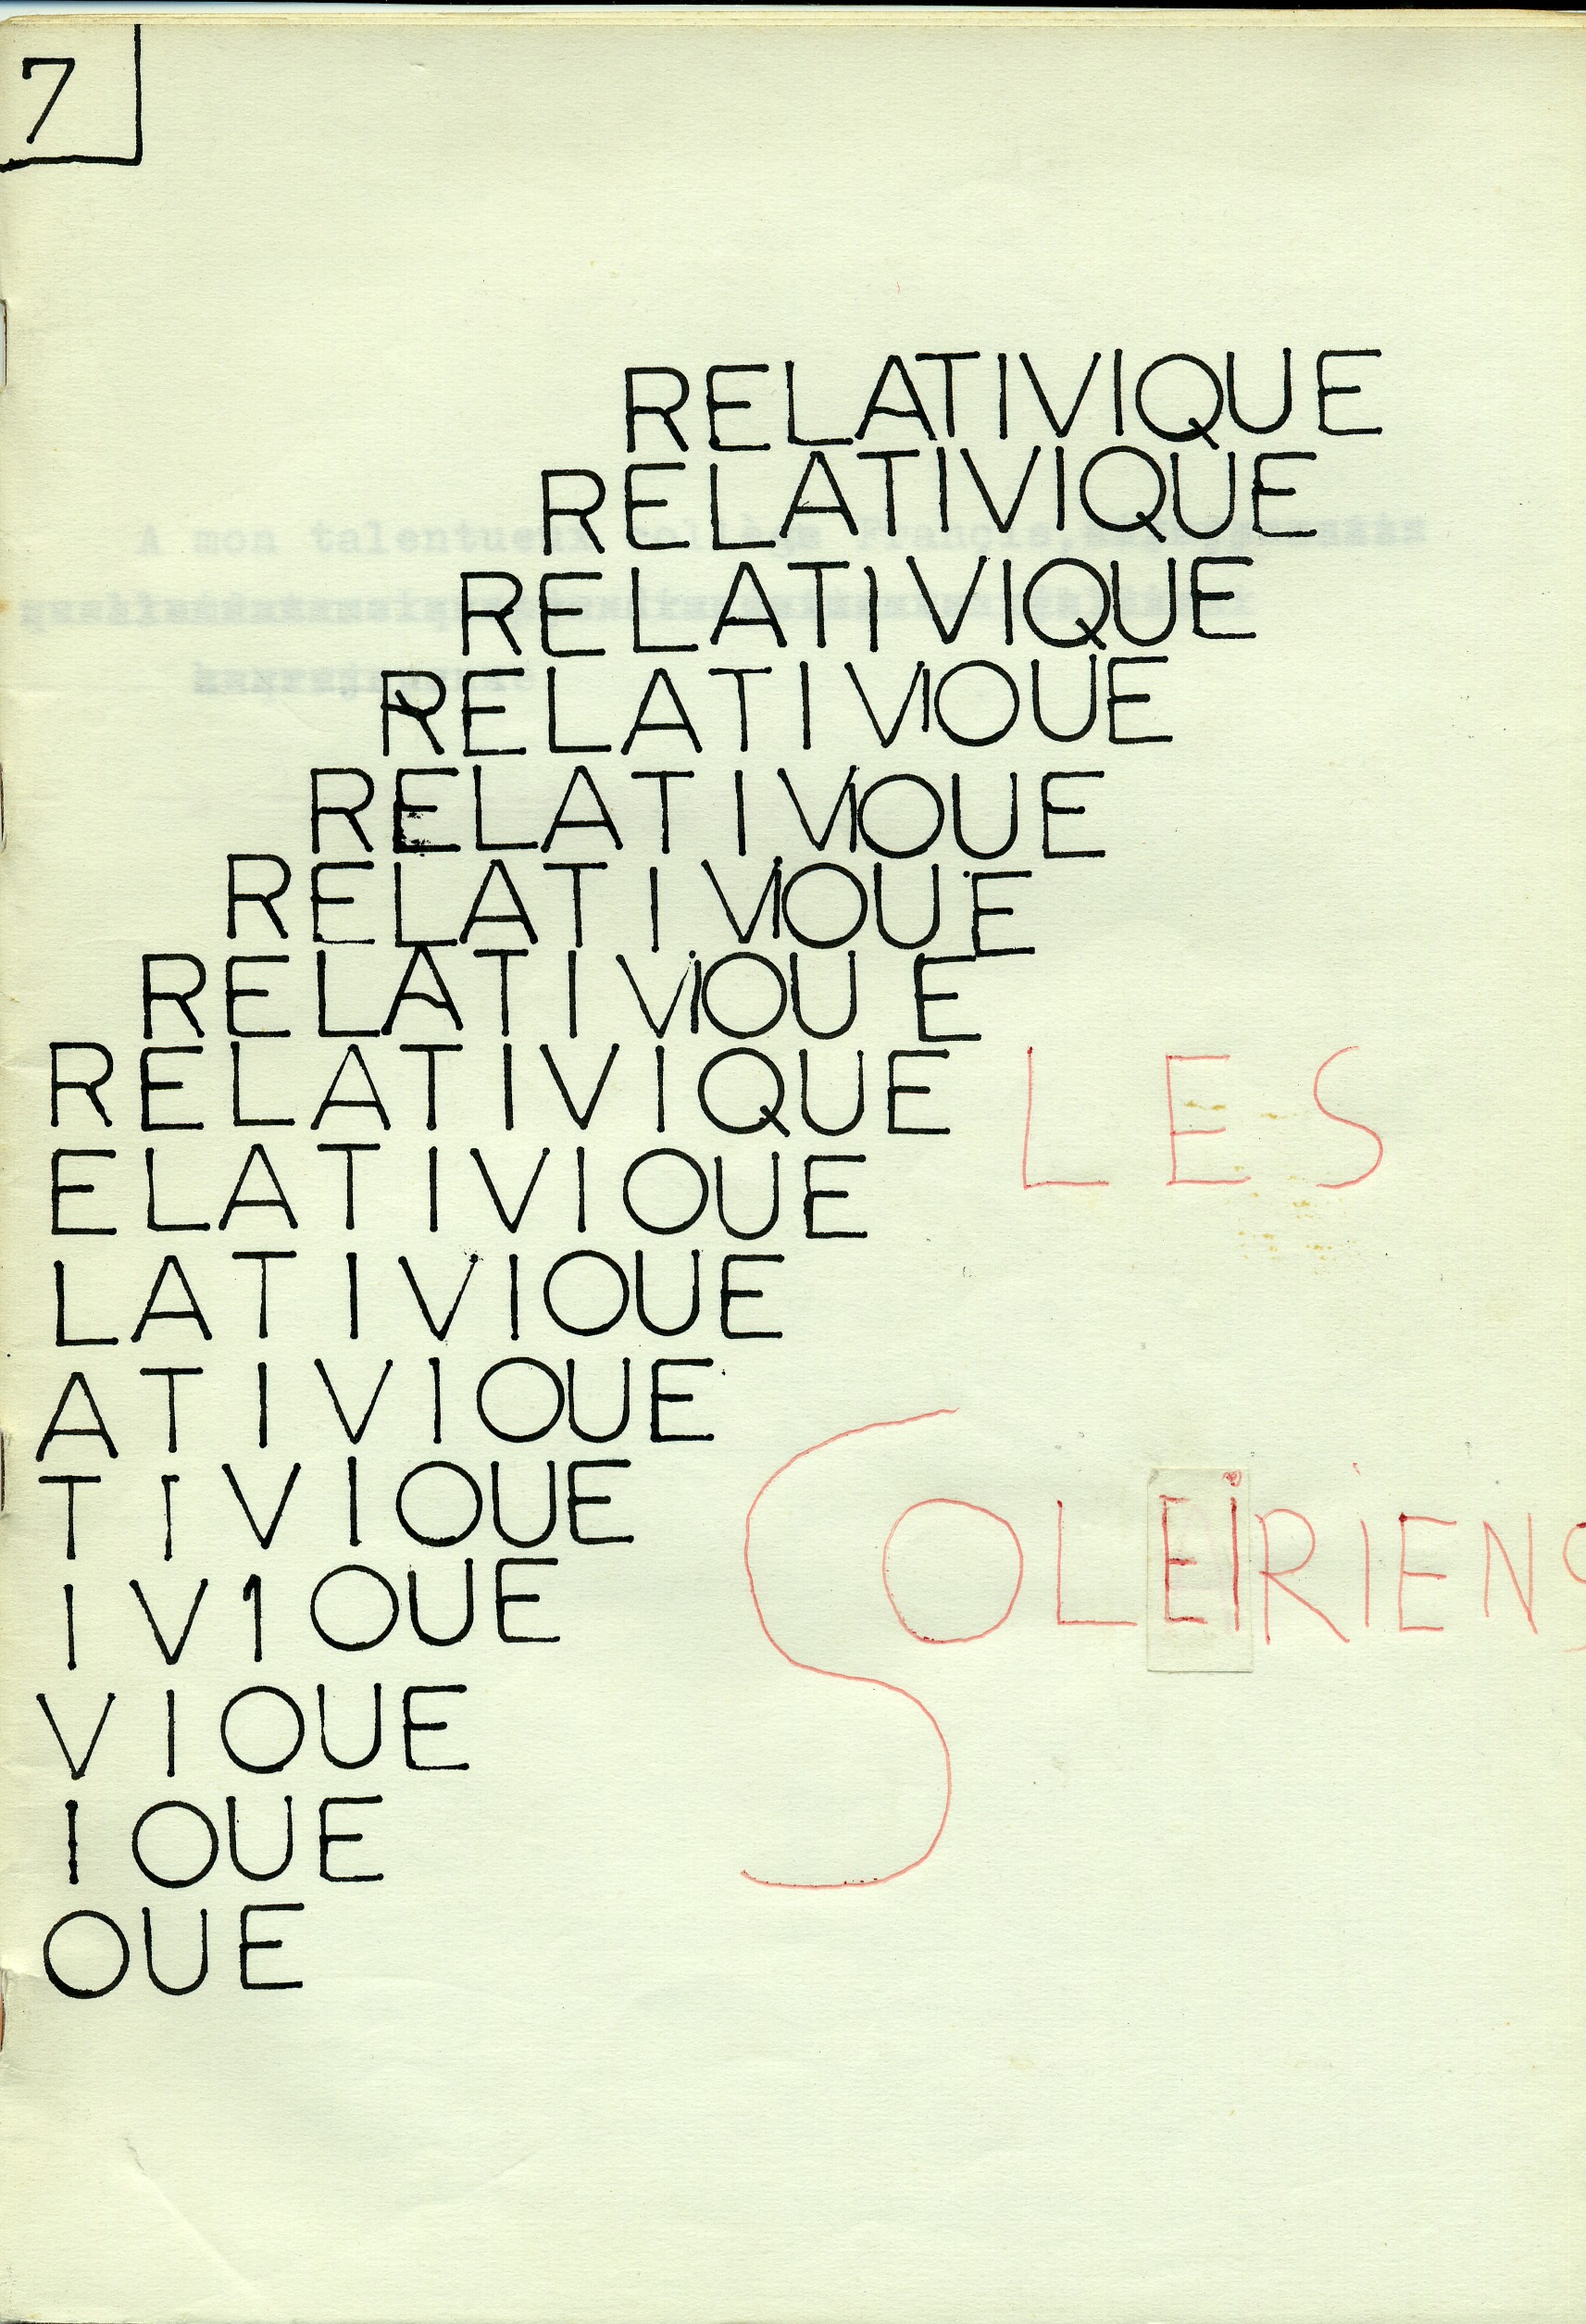 7
RELATIVIQUE
RELATIVIQUE
RELATIVIQUE
RELATIVIOUE
RELATIVIOUE
RELATIVIOUE
RELATIVIOU E
RELATIVIQUE
LES
ELATIVIOUE
LATIVIOUE
ATIVIOUE
TIVIOUE
SOLEIRIENS
IV1OUE
VIOUE
IOUE
OUE
A mon talentueux